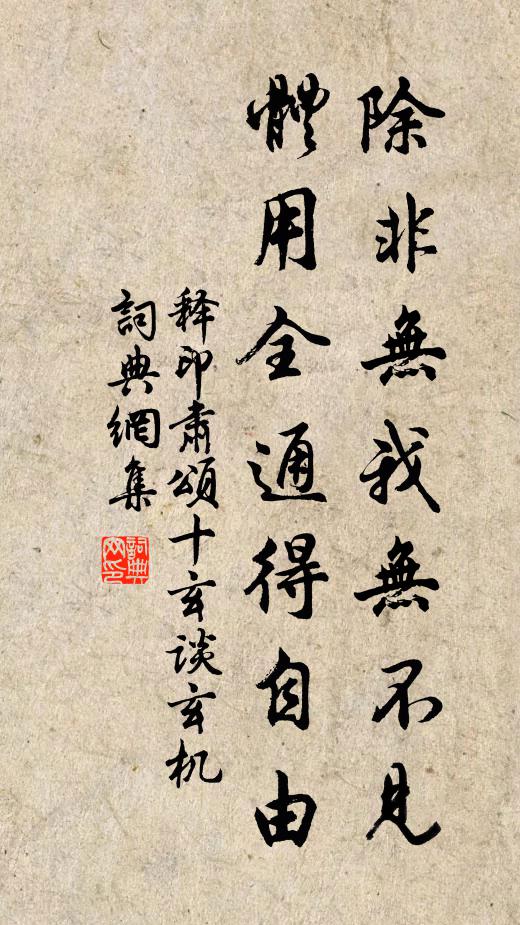 除非無我無不見
體用全通得自由
释印肃頌十玄谈玄机
詞典網集
詞典网印